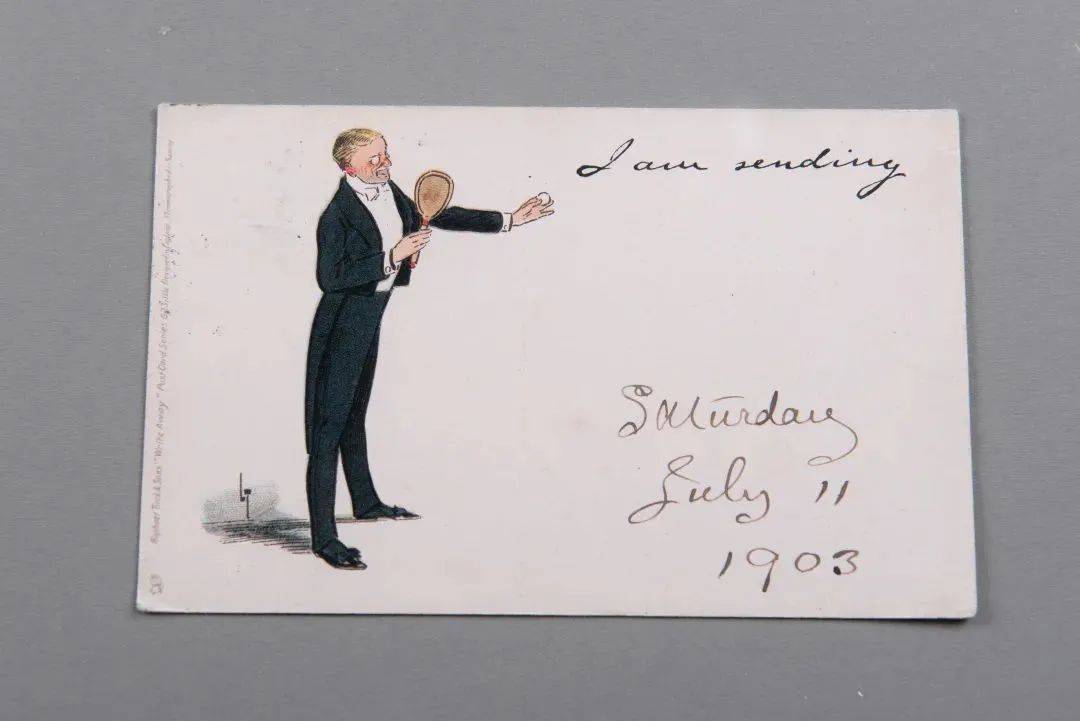 I am sending
Saturday
July 11
1903
Raphael Tuck & Sons "Write Away" Post Card Series